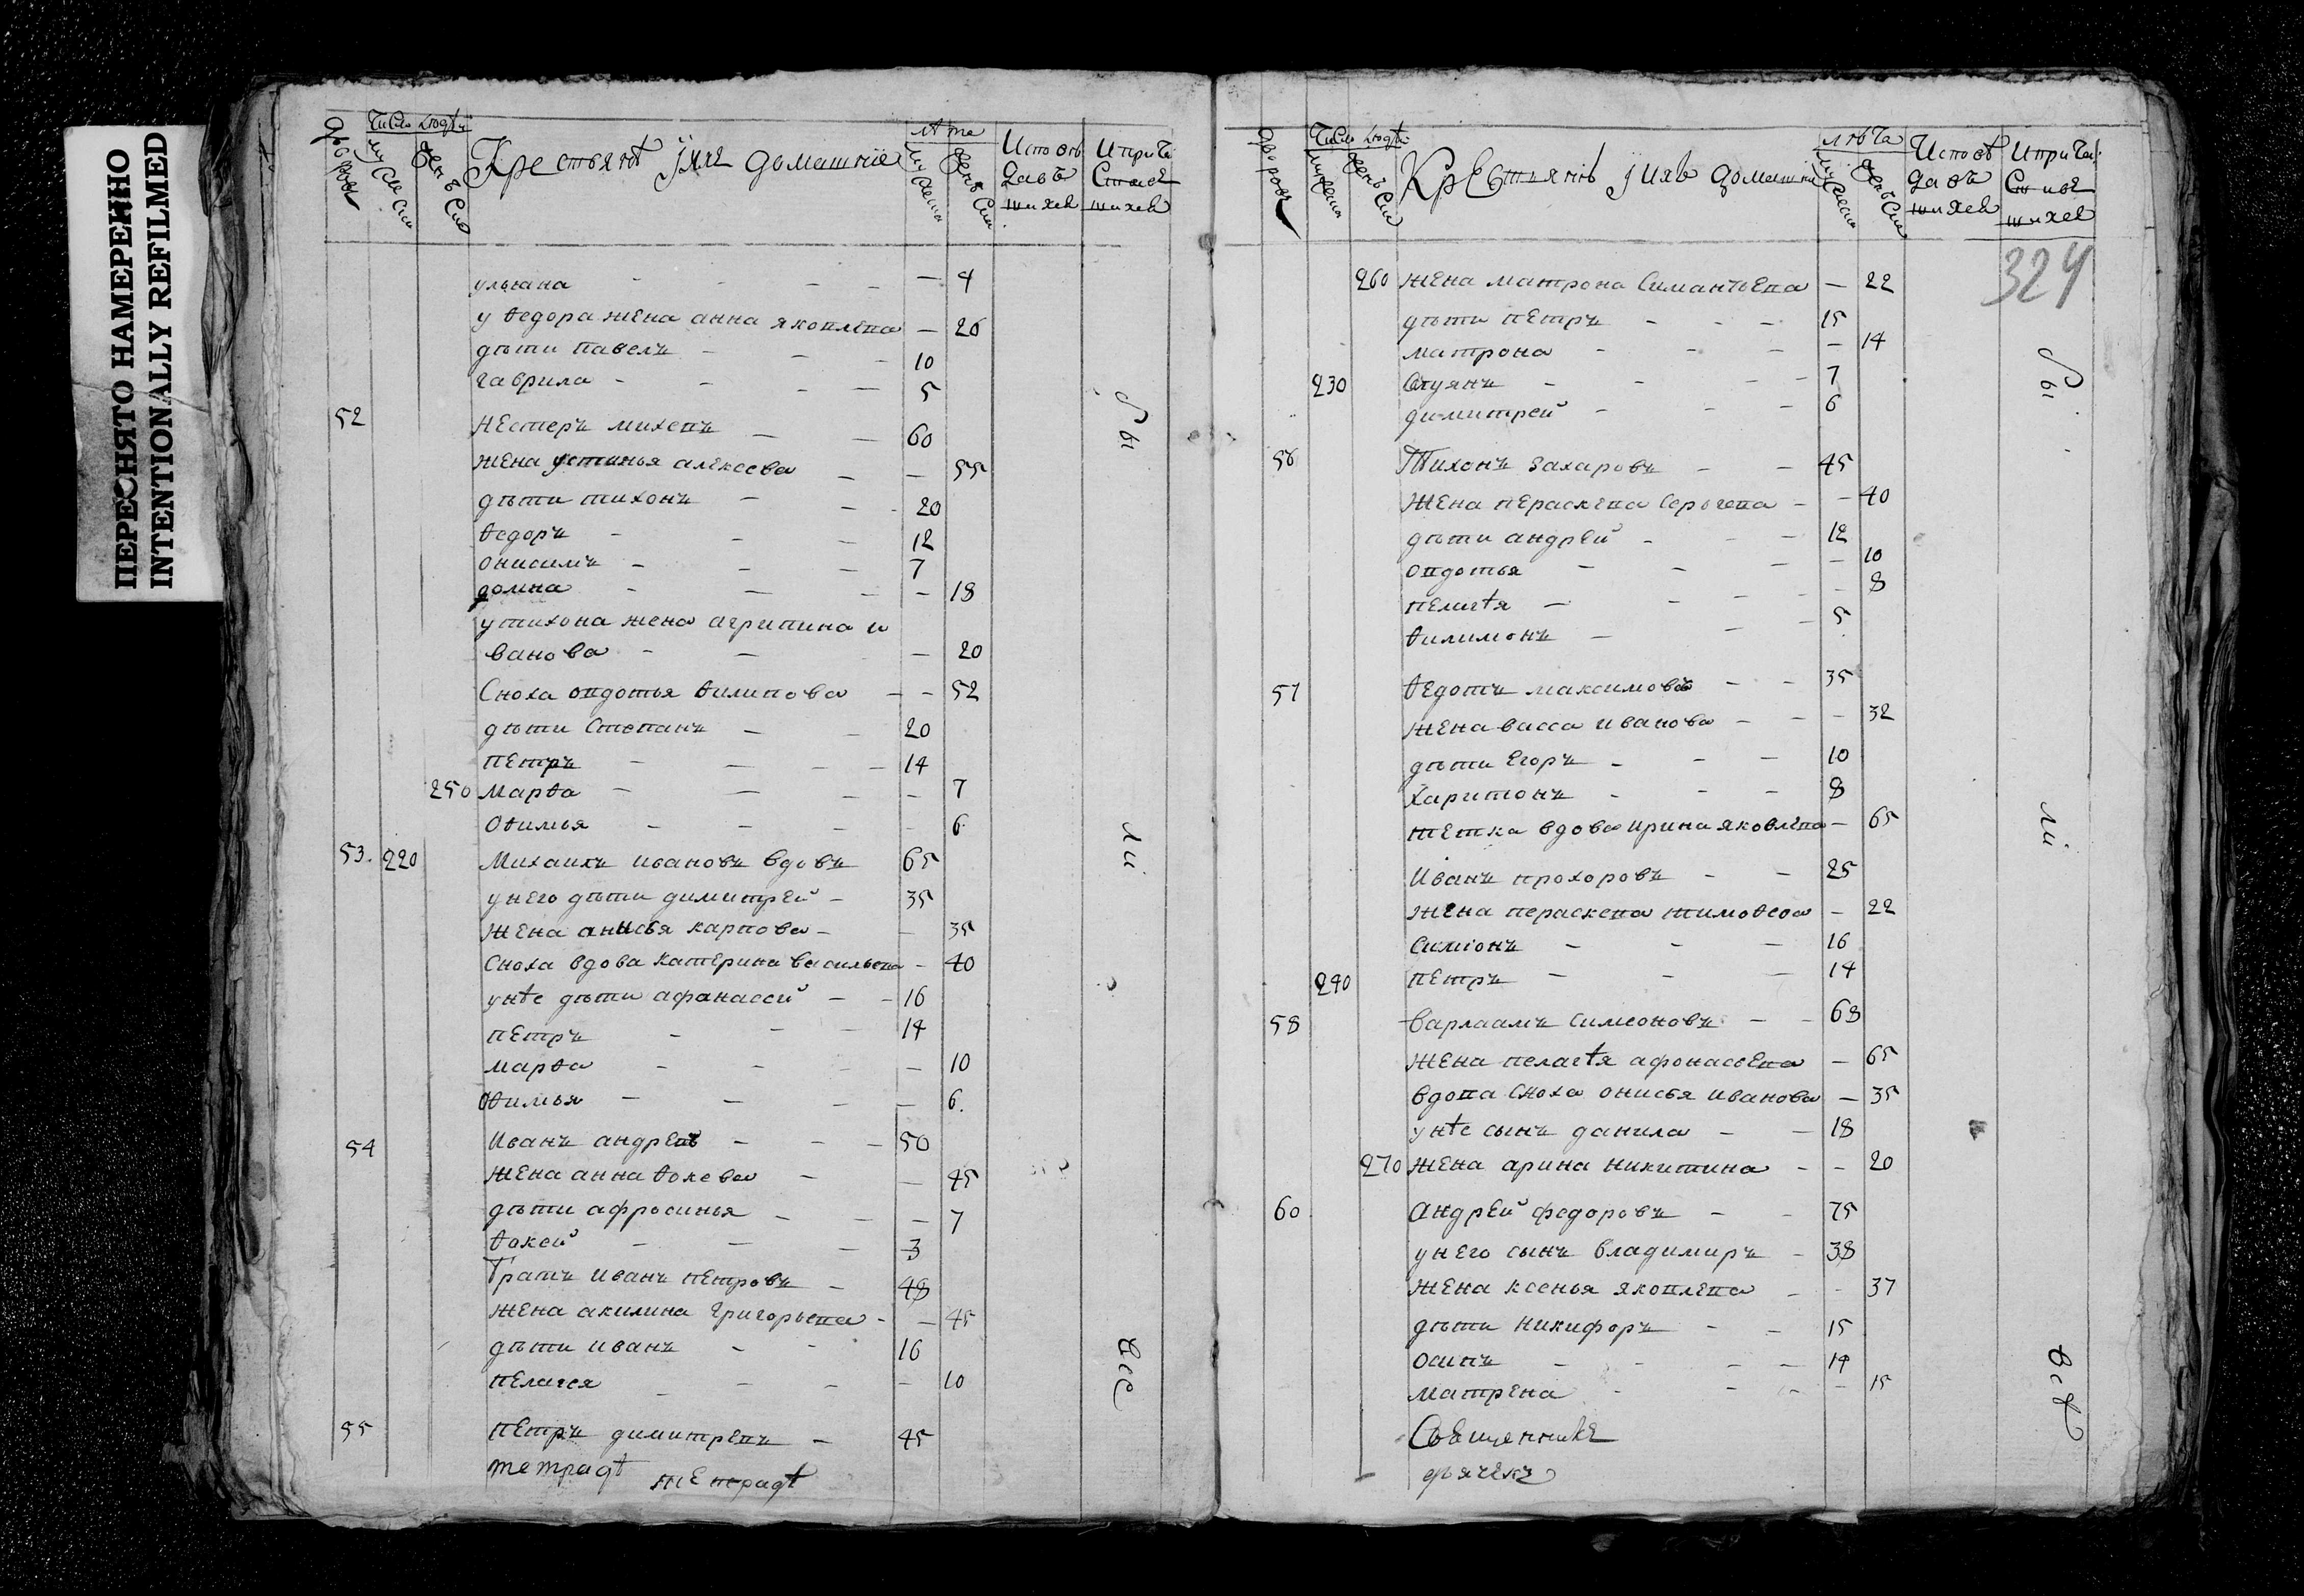 ПЕРЕСНЯТО НАМЕРЕННО
INTENTIONALLY REFILMED
Число людѣй
лѣта
дворовъ
Крестьянѣ ӱихъ домашнїе
Исповѣ
давъ
шихся
Ипричя
стивъ
шихся
ульяна — 4
у ѳедора жена анна яковлева — 26
дѣти павелъ — 10
гаврила — 5
52 нестеръ михеевъ — 60
жена устинья алексева — 55
дѣти тихонъ — 20
ѳедоръ — 12
онисимъ — 7
домна — 18
у тихона жена агрипина и
ванова — 20
Сноха овдотья ѳилипова — 52
дѣти Степанъ — 20
петръ — 14
250 марѳа — 7
Оѳимья — 6
53. 220 Михаилъ ивановъ вдовъ 65
унего дѣти димитрей — 35
жена анисья карпова — 35
Сноха вдова катерина васильева — 40
унѣе дѣти афанассей — 16
петръ — 14
марѳа — 10
Оѳимья — 6.
54 Иванъ андреевъ — 50
жена анна ѳокева — 45
дѣти афросинья — 7
ѳокей — 3
братъ иванъ петровъ — 48
жена акилина григорьева — 45
дѣти иванъ — 16
пелагея — 10
55 петръ димитревъ — 45
тетрадѣ тетрадѣ
бы
ли
всѣ
Число людѣй
лѣта
дворовъ
Крестьянѣ ӱихъ домашнїе
Исповѣ
давъ
шихся
Ипричя
стивъ
шихся
324
260 жена матрона Симантьева — 22
дѣти петръ — 15
матрона — 14
230 — 7
димитрей — 6
56 Тихонъ захаровъ — 45
жена пераскева Серьгева — 40
дѣти андрей — 12
овдотья — 10
пелагѣя — 8
ѳилимонъ — 5
57 ѳедотъ максимовъ — 35
жена васса иванова — 32
дѣти Егоръ — 10
харитонъ — 8
тетка вдова ирина яковлева — 65
Иванъ прохоровъ — 25
жена пераскева тимоѳеева — 22
Симіонъ — 16
240 петръ — 14
58 варлаамъ симеоновъ — 68
жена пелагѣя афонасьева — 65
вдова Сноха онисья иванова — 35
унѣе сынъ данила — 18
270 жена арина никитина — 20
60 андрей федоровъ — 75
унего сынъ владимиръ — 38
жена ксенья яковлева — 37
дѣти никифоръ — 15
осипъ — 14
матрена — 15
Священникъ
дьячекъ
бы
ли
всѣ